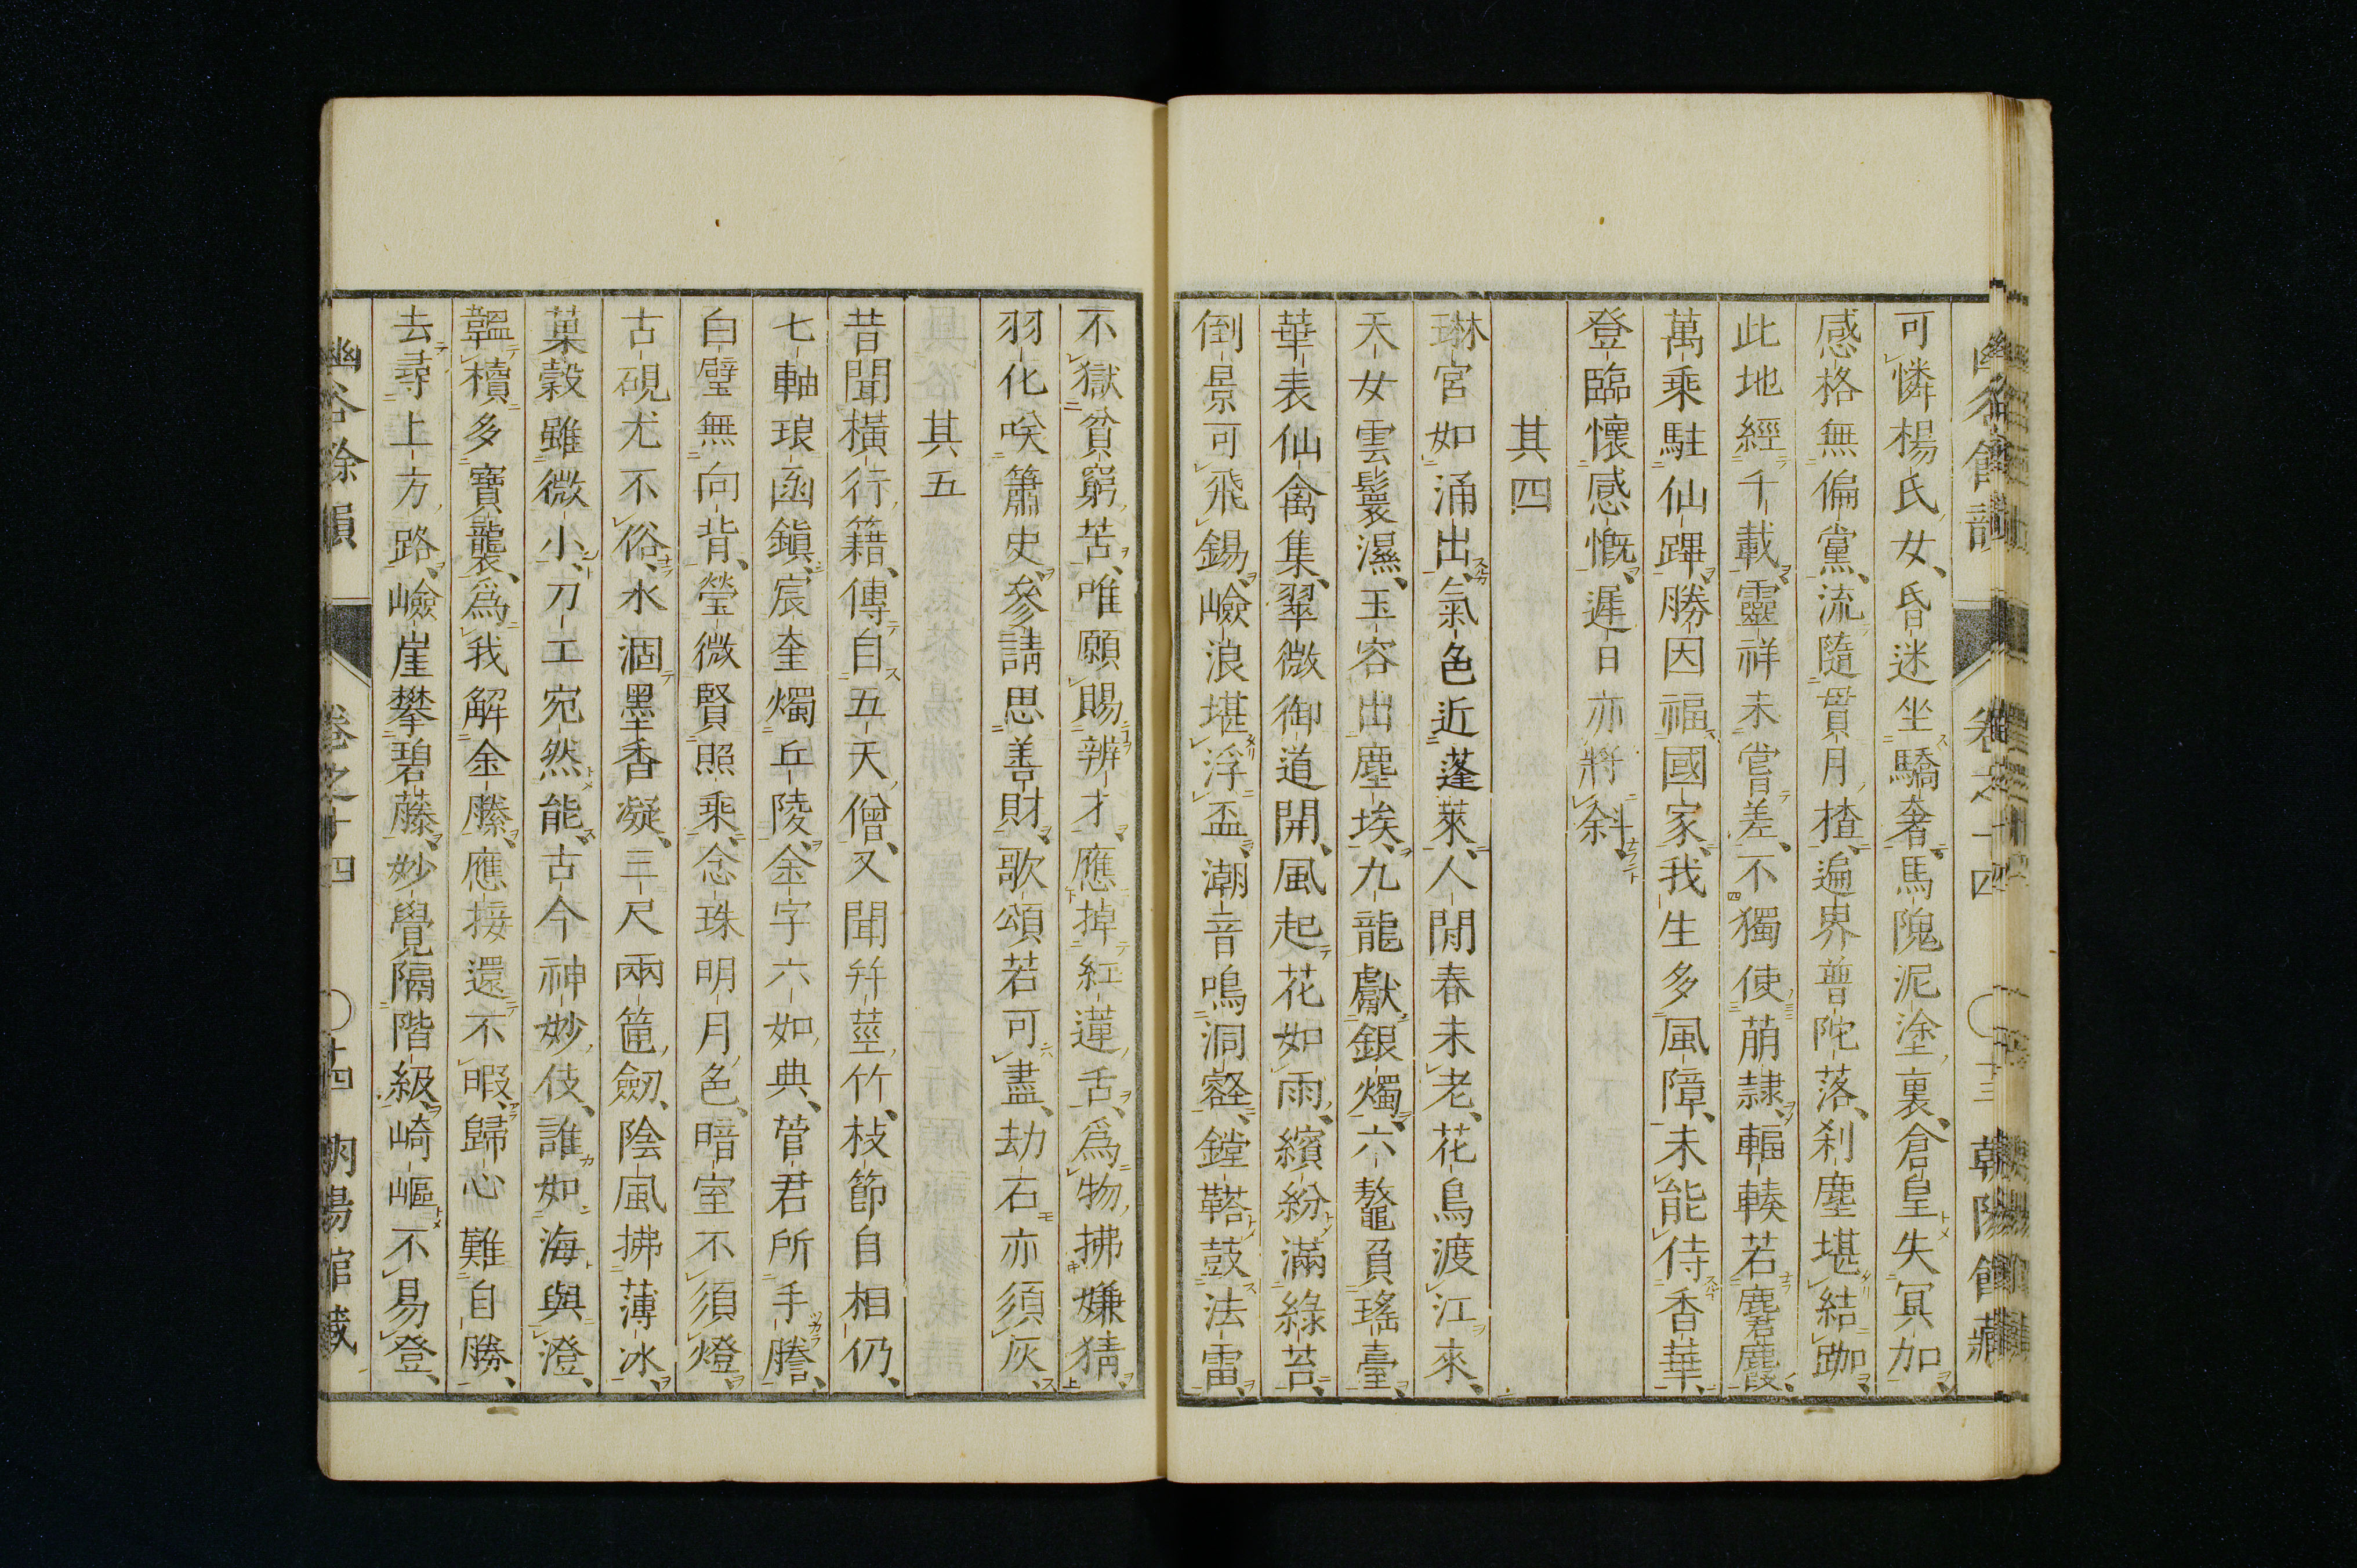 可憐楊氏女、昏迷坐驕奢、馬隗泥塗裏、倉皇失冥加、
感格無偏黨、流隨貫月楂、遍界普陀落、刹塵堪結跏、
此地經千載靈祥未嘗差、不獨使萠隷、輻輳若麏麚、
萬乘駐仙蹕勝因福國家、我生多風障、未能侍香華、
登臨懷感慨、遲日亦將斜、
其四
琳宮如涌出、氣色近蓬萊、人閒春未老、花鳥渡江來、
天女雲鬟濕、玉容出塵埃、九龍獻銀燭、六鼇負瑤臺、
華表仙禽集、翠微御道開、風起花如雨、繽紛滿綠苔、
倒景可飛錫、嶮浪堪浮盃、潮音鳴洞壑、鏜鞳鼓法雷、
不獄貧窮苦、唯願賜辨才、應掉紅蓮舌、爲物拂嫌猜、
羽化唉簫史、參請思善財、歌頌若可盡、劫石亦須灰、
其五
昔聞橫行籍、傳自五天僧、又聞幷莖竹、枝節自相仍、
七軸琅函鎭、宸奎燭丘陵、金字六如典、菅君所手謄、
白璧無向背、瑩微賢照乘、念珠明月色、暗室不須燈、
古硯尤不俗、水涸墨香凝、三尺兩筐劒、陰風拂薄冰、
菓穀雖微小、刀工宛然能、古今神妙伎、誰如海與澄、
韞櫝多寶襲、爲我解金縢、應接還不暇、歸心難自勝、
去尋上方路、嶮崖攀碧藤、妙覺隔階級、崎嶇不易登、
幽谷餘韻 卷之十四 〇十四 朝陽館藏